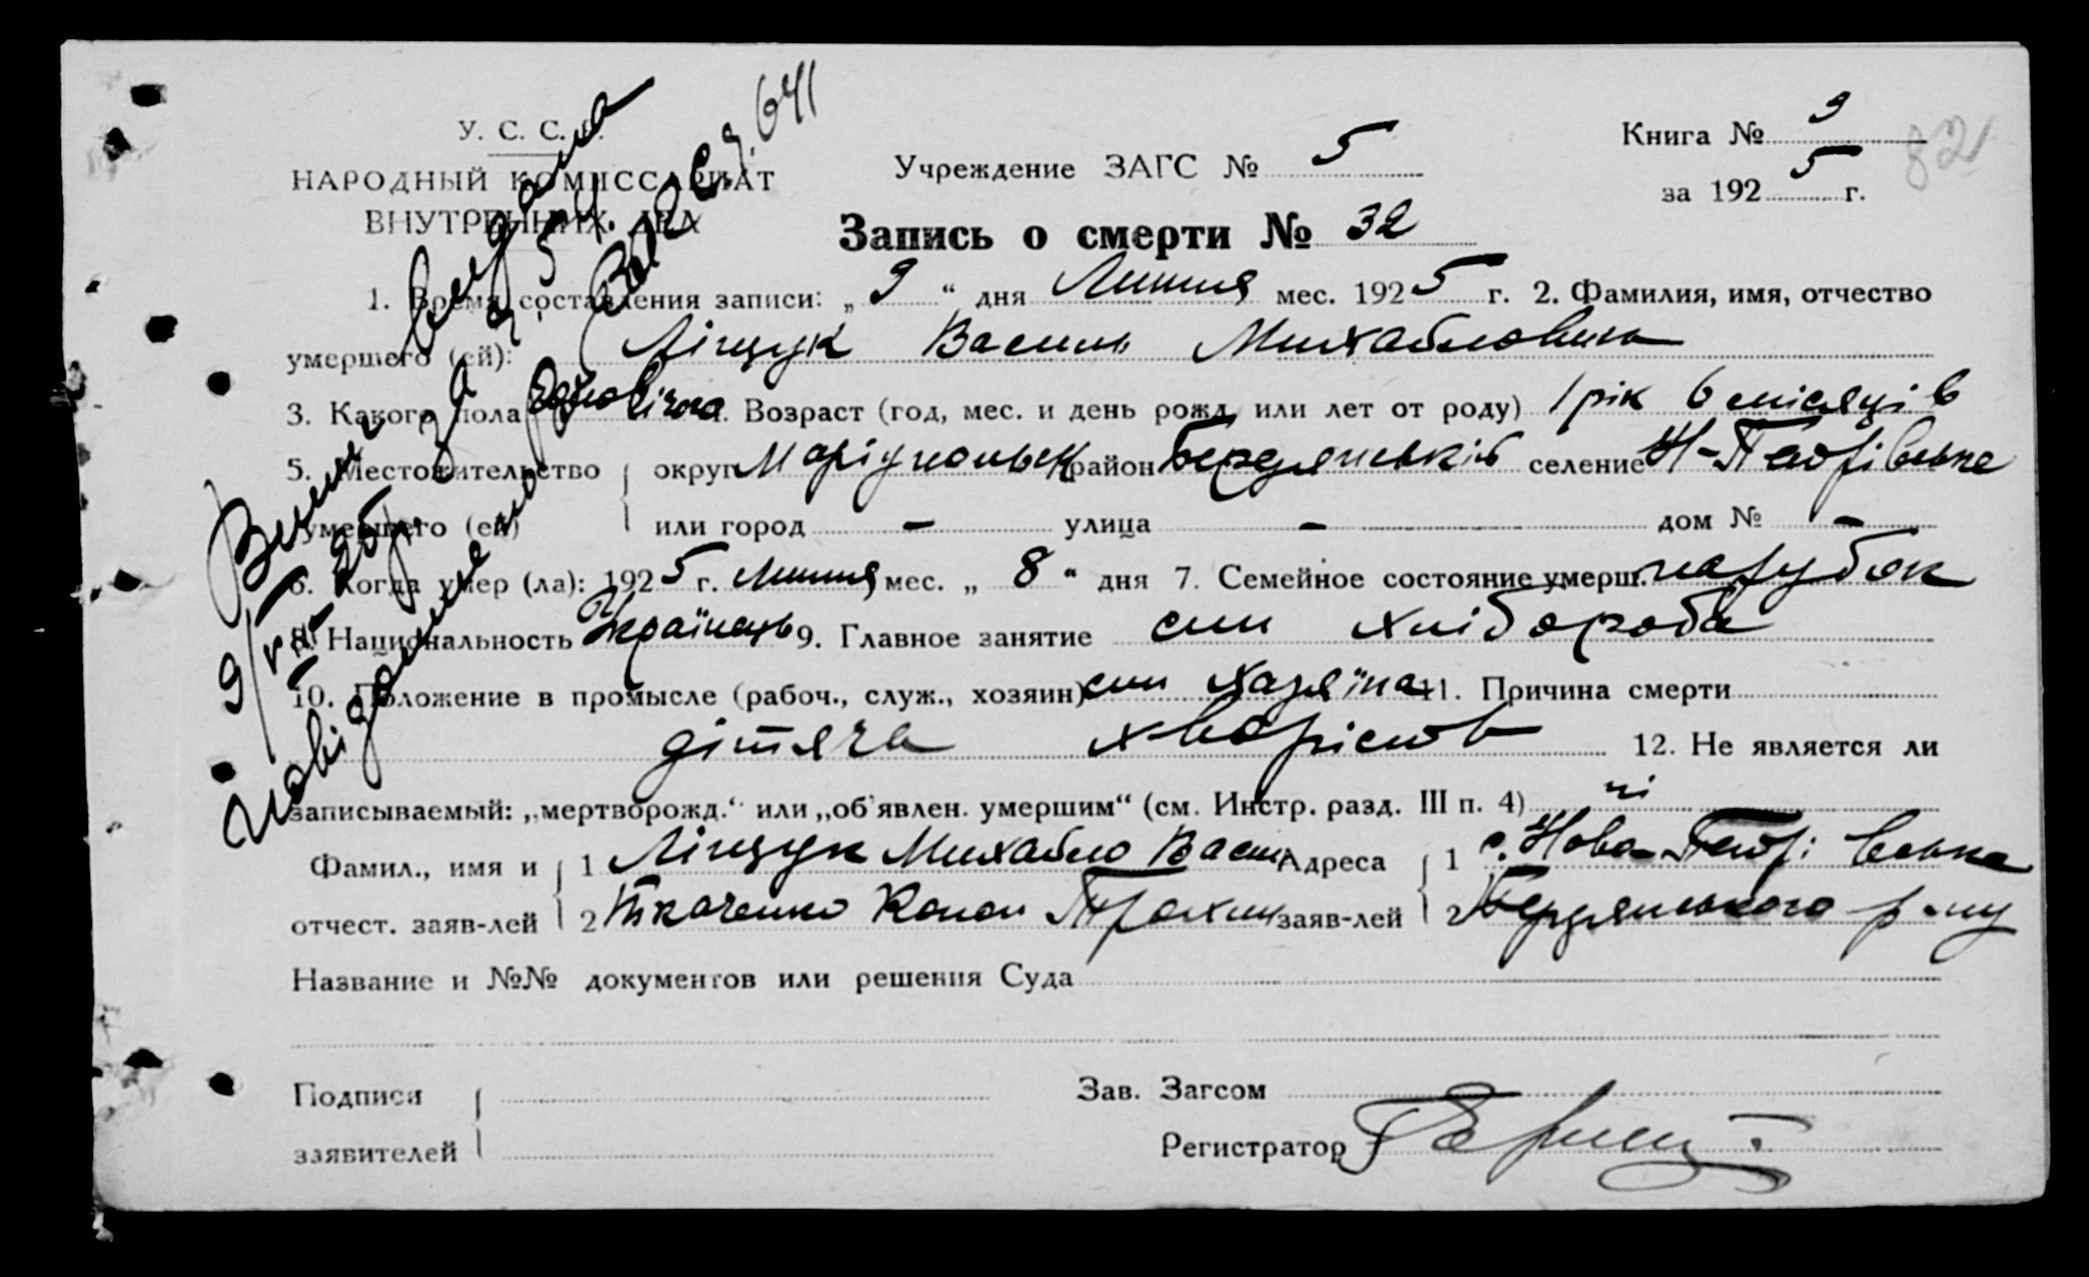 У. С. С. Р.
НАРОДНЫЙ КОМИССАРИАТ
ВНУТРЕННИХ ДЕЛ
Учреждение ЗАГС № 5
Книга № 9
82
за 1925 г.
Запись о смерти № 32
1. Время составления записи: „9“ дня Липня мес. 1925 г. 2. Фамилия, имя, отчество
умершего (ей): Ліщук Василь Михайлович
3. Какого пола чоловічого 4. Возраст (год, мес. и день рожд. или лет от роду) 1 рік 6 місяців
5. Местожительство округ Маріупольськ район Бердянській селение Н-Петрівське
умершего (ей) или город - улица - дом № -
6. Когда умер (ла): 1925 г. Липня мес. „8“ дня 7. Семейное состояние умерш. парубок
8. Национальность Українець 9. Главное занятие син хлібороба
10. Положение в промысле (рабоч., служ., хозяин) син хазяїна 11. Причина смерти
дітяча хворість 12. Не является ли
записываемый: „мертворожд.“ или „об'явлен. умершим“ (см. Инстр. разд. III п. 4) ні
Фамил., имя и 1 Ліщук Михайло Васил Адреса 1 с. Ново-Петрівське
отчест. заяв-лей 2 Ткаченко Конон Трохим заяв-лей 2 Бердянського р-ну
Название и №№ документов или решения Суда
Подписи
заявителей
Зав. Загсом
Регистратор
Випис видана
9/VII-25р. за № 54
641